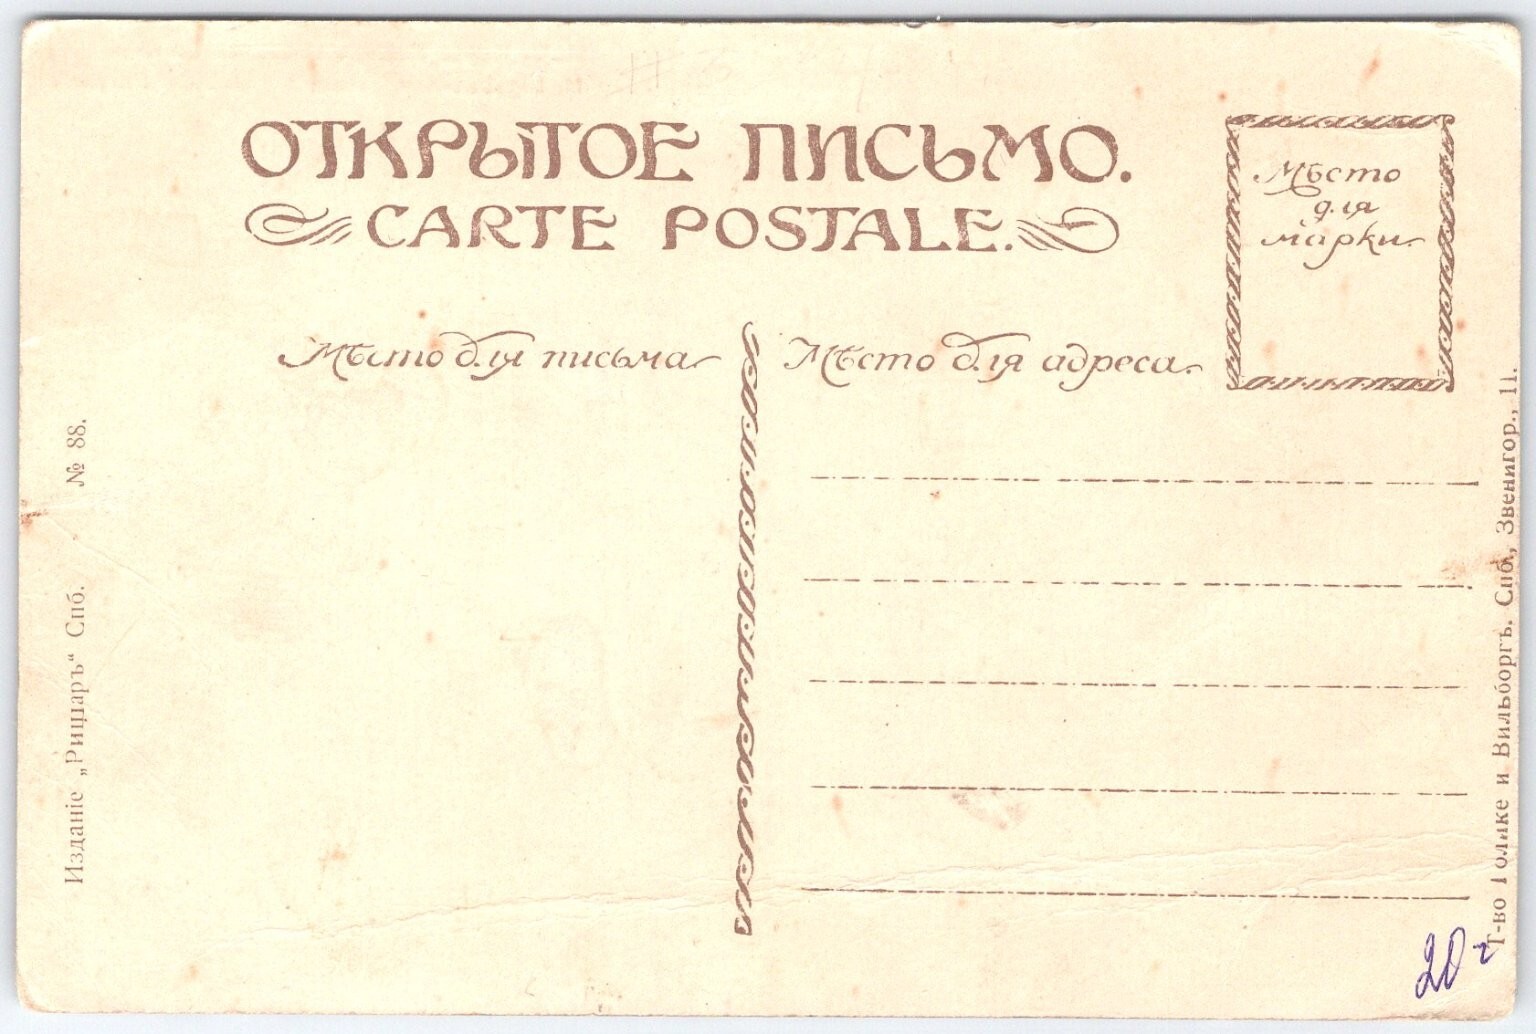 ОТКРЫТОЕ ПИСЬМО.
CARTE POSTALE.
Мѣсто
для
марки.
Мѣсто для письма
Мѣсто для адреса.
№ 88.
Изданіе „Рицаръ“ Спб.
Т-во Голике и Вильборгъ. Спб., Звенигор., 11.
20